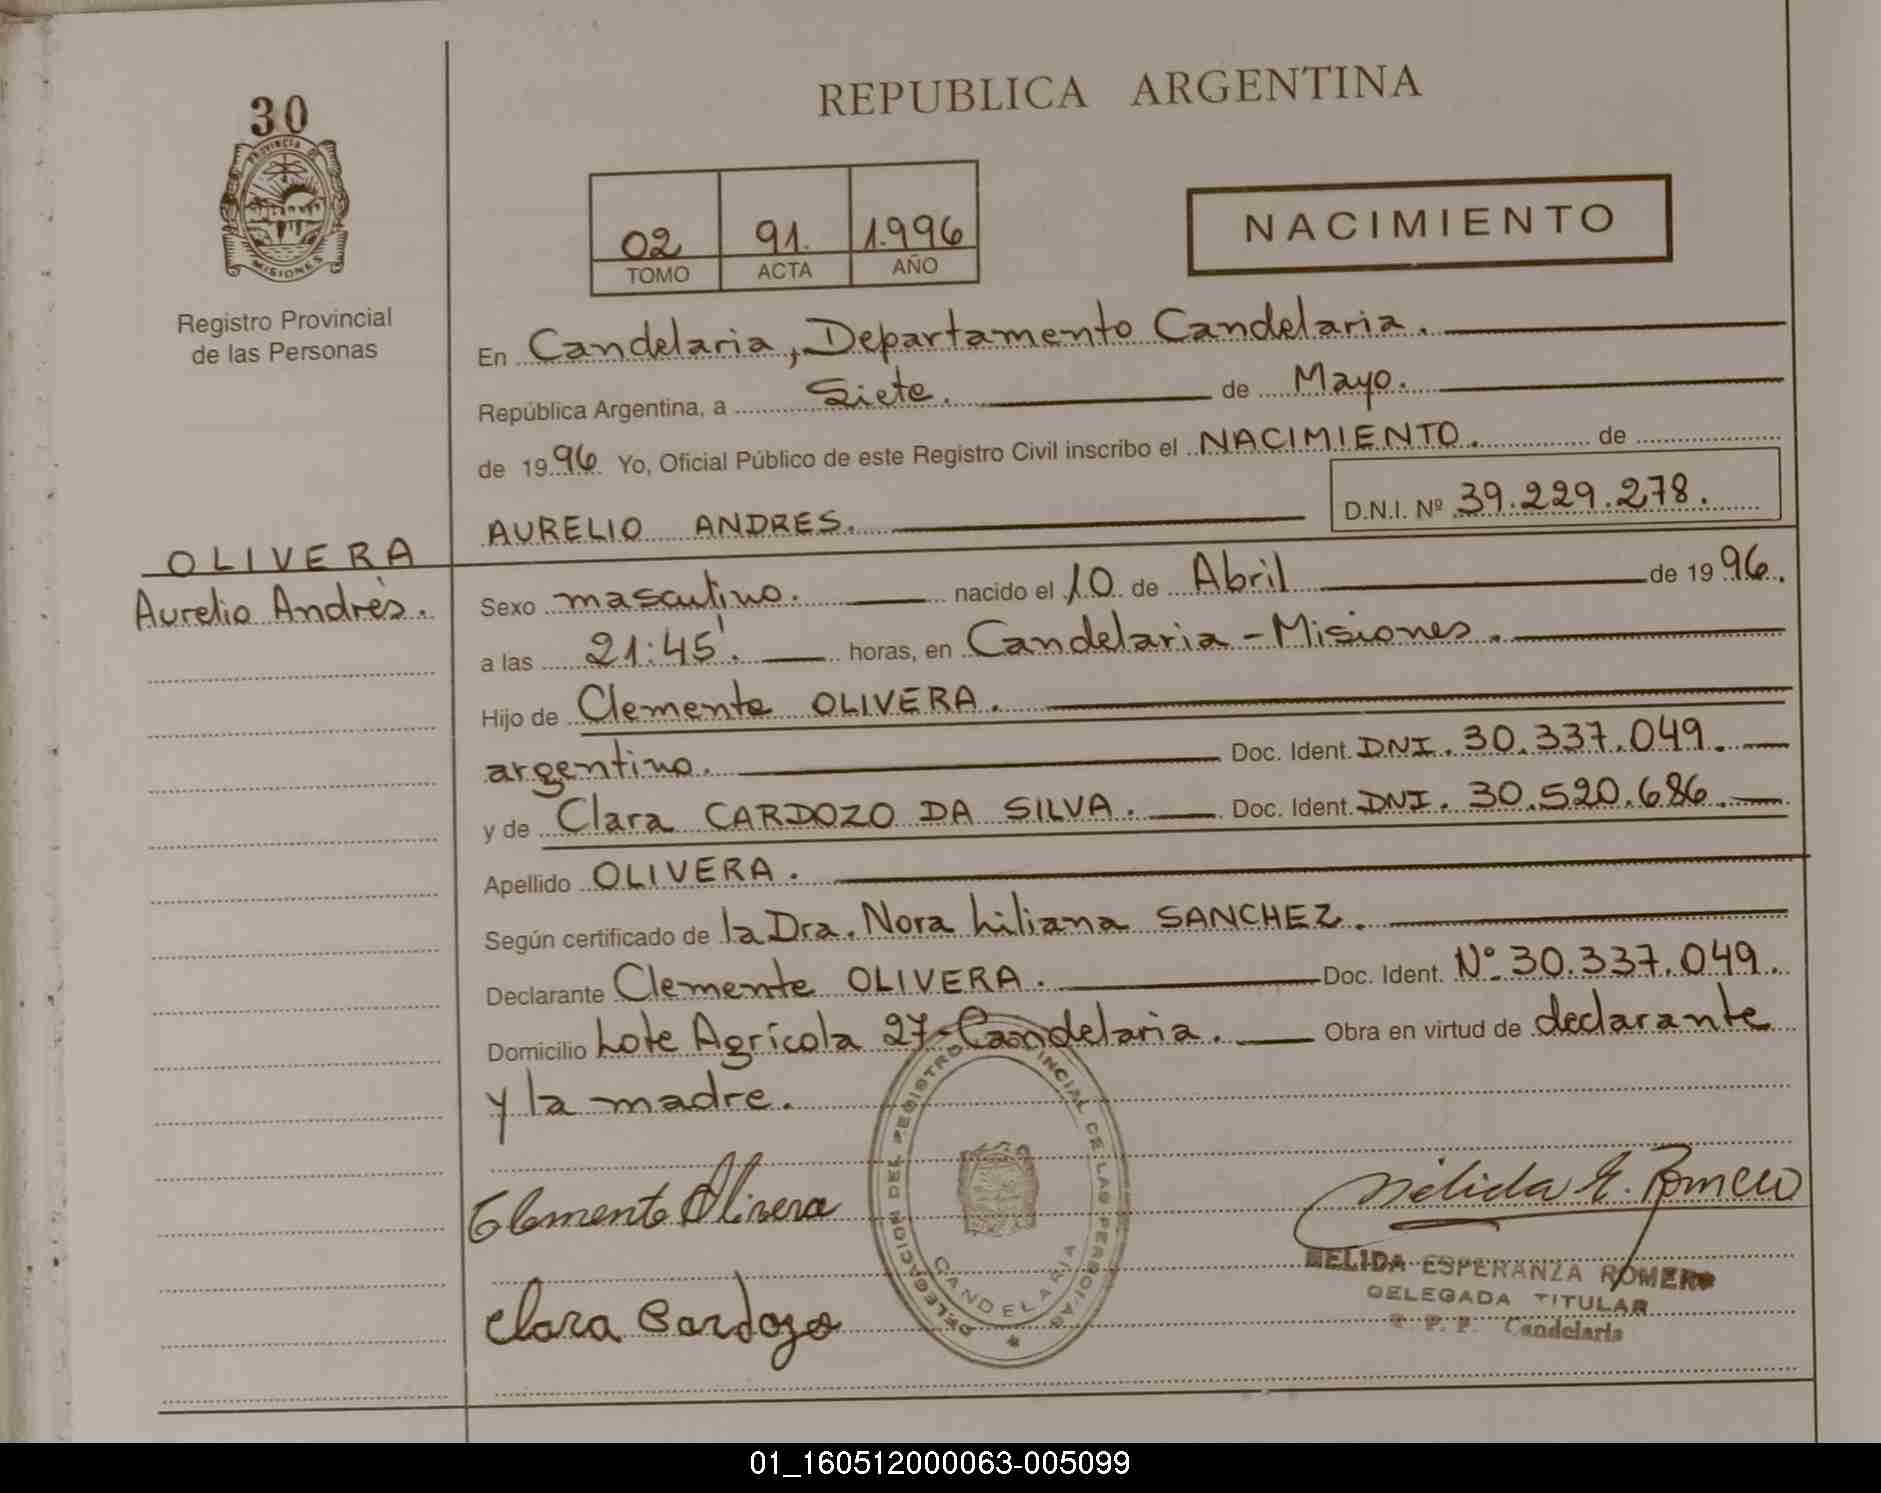 30
PROVINCIA DE
MISIONES
Registro Provincial
de las Personas
REPUBLICA ARGENTINA
02 91. 1.996
TOMO ACTA AÑO
NACIMIENTO
En Candelaria, Departamento Candelaria.
República Argentina, a Siete. de Mayo.
de 1996 Yo, Oficial Público de este Registro Civil inscribo el NACIMIENTO. de
AURELIO ANDRES. D.N.I. Nº 39.229.278.
OLIVERA
Aurelio Andrés.
Sexo masculino. nacido el 10 de Abril de 1996.
a las 21:45'. horas, en Candelaria - Misiones.
Hijo de Clemente OLIVERA.
argentino. Doc. Ident. DNI. 30.337.049.
y de Clara CARDOZO DA SILVA. Doc. Ident. DNI. 30.520.686.
Apellido OLIVERA.
Según certificado de la Dra. Nora Liliana SANCHEZ.
Declarante Clemente OLIVERA. Doc. Ident. Nº 30.337.049.
Domicilio Lote Agrícola 27 - Candelaria. Obra en virtud de declarante
y la madre.
Clemente Olivera
Clara Cardozo
DELEGACION DEL REGISTRO PROVINCIAL DE LAS PERSONAS
CANDELARIA
Nélida E. Romero
NELIDA ESPERANZA ROMERO
DELEGADA TITULAR
R. P. P. Candelaria
01_160512000063-005099